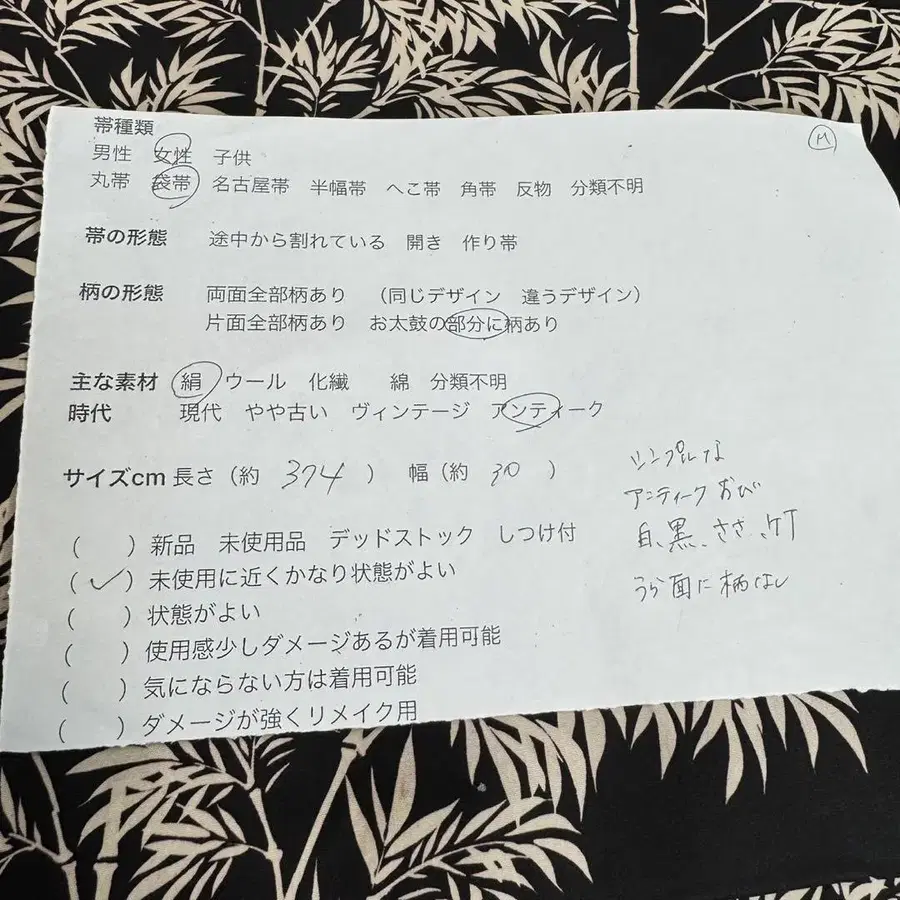 帯種類
M
男性 女性 子供
丸帯 袋帯 名古屋帯 半幅帯 へこ帯 角帯 反物 分類不明
帯の形態 途中から割れている 開き 作り帯
柄の形態 両面全部柄あり (同じデザイン 違うデザイン)
片面全部柄あり お太鼓の部分に柄あり
主な素材 絹 ウール 化繊 綿 分類不明
時代 現代 やや古い ヴィンテージ アンティーク
サイズcm 長さ(約 374 ) 幅(約 30 )
シンプルな
アンティークおび
白、黒、ささ、竹
うら面に柄なし
( )新品 未使用品 デッドストック しつけ付
(✓)未使用に近くかなり状態がよい
( )状態がよい
( )使用感少しダメージあるが着用可能
( )気にならない方は着用可能
( )ダメージが強くリメイク用